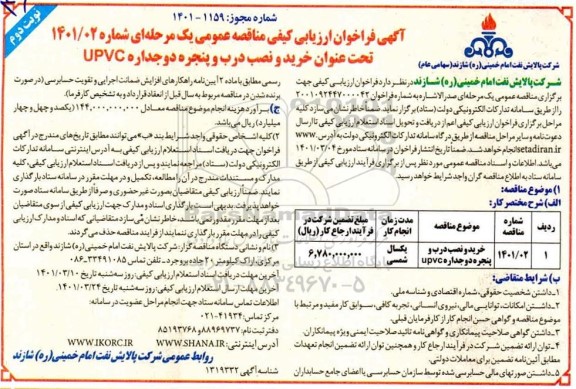 نوبت دوم
شماره مجوز: ۱۱۵۹-۱۴۰۱
آگهی فراخوان ارزیابی کیفی مناقصه عمومی یک مرحله‌ای شماره ۱۴۰۱/۰۲
تحت عنوان خرید و نصب درب و پنجره دوجداره UPVC
شرکت پالایش نفت امام خمینی (ره) شازند (سهامی عام)
شرکت پالایش نفت امام خمینی (ره) شازند در نظر دارد فراخوان ارزیابی کیفی جهت
برگزاری مناقصه عمومی یک مرحله‌ای صدرالاشاره به شماره فراخوان ۲۰۰۱۰۹۲۴۴۷۰۰۰۰۴۲
را از طریق سامانه تدارکات الکترونیکی دولت (ستاد) برگزار نماید.
مراحل برگزاری فراخوان ارزیابی کیفی اعم از دریافت و تحویل اسناد استعلام ارزیابی کیفی تا ارسال
دعوت‌نامه و سایر مراحل مناقصه از طریق درگاه سامانه تدارکات الکترونیکی دولت به آدرس www.
setadiran.ir انجام خواهد شد. ضمناً تاریخ انتشار فراخوان در سامانه ستاد مورخ ۱۴۰۱/۰۳/۰۴
می‌باشد. اطلاعات و اسناد مناقصه عمومی مورد نظر پس از برگزاری فرآیند ارزیابی کیفی از طریق
سامانه ستاد به اطلاع مناقصه گران واجد شرایط خواهد رسید.
۱) موضوع مناقصه:
الف) شرح مختصر کار:
ردیف | شماره مناقصه | موضوع مناقصه | مدت زمان انجام کار | مبلغ تضمین شرکت در فرآیند ارجاع کار (ریال)
۱ | ۱۴۰۱/۰۲ | خرید و نصب درب و پنجره دوجداره upvc | یکسال شمسی | ۶,۷۸۰,۰۰۰,۰۰۰
ب) شرایط متقاضی:
۱- داشتن شخصیت حقوقی، شماره اقتصادی و شناسه ملی.
۲- داشتن امکانات، توانایی مالی، نیروی انسانی، تجربه کافی، سوابق کار مفید و مرتبط با
موضوع مناقصه و گواهی حسن انجام کار از کارفرمایان قبلی.
۳- داشتن گواهی صلاحیت پیمانکاری و گواهی‌نامه تائید صلاحیت ایمنی ویژه پیمانکاران.
۴- توان ارائه تضمین شرکت در فرآیند ارجاع کار و همچنین توان ارائه تضمین انجام تعهدات
مطابق آئین‌نامه تضمین برای معاملات دولتی.
۵- داشتن صورتهای مالی حسابرسی شده توسط سازمان حسابرسی یا اعضای جامع حسابداران
رسمی مطابق با ماده ۲ آیین‌نامه راهکارهای افزایش ضمانت اجرایی و تقویت حسابرسی (در صورت
برنده شدن در مناقصه مربوط به سال قبل از انعقاد قرارداد و به تشخیص کارفرما).
ج) برآورد هزینه انجام موضوع مناقصه معادل ۱۴۴,۰۰۰,۰۰۰,۰۰۰ (یکصد و چهل و چهار
میلیارد) ریال می‌باشد.
۲) کلیه اشخاص حقوقی واجد شرایط بند «ب» می‌توانند مطابق تاریخ‌های مندرج در آگهی
فراخوان جهت دریافت اسناد استعلام ارزیابی کیفی به آدرس اینترنتی سامانه تدارکات
الکترونیکی دولت (ستاد) مراجعه نمایند و پس از دریافت اسناد استعلام ارزیابی کیفی، کلیه
مدارک و مستندات مندرج در آن را مطالعه، تکمیل و در مهلت مقرر در سامانه ستاد بارگذاری
نمایند. ضمناً ارزیابی کیفی متقاضیان بصورت غیر حضوری و صرفاً از طریق سامانه ستاد صورت
خواهد پذیرفت.
۳) نام و نشانی دستگاه مناقصه گزار: شرکت پالایش نفت امام خمینی (ره) شازند واقع در استان
مرکزی، اراک، کیلومتر ۲۰ جاده بروجرد - تلفن تماس: ۳۳۴۹۱۰۸۵-۰۸۶
آخرین مهلت دریافت اسناد استعلام ارزیابی کیفی: روز سه‌شنبه تا تاریخ ۱۴۰۱/۰۳/۱۰
آخرین مهلت بارگذاری اسناد استعلام ارزیابی کیفی: روز سه‌شنبه تا تاریخ ۱۴۰۱/۰۳/۲۴
اطلاعات تماس سامانه ستاد جهت انجام مراحل عضویت در سامانه:
مرکز تماس: ۴۱۹۳۴-۰۲۱
دفتر ثبت نام: ۸۸۹۶۹۷۳۷ و ۸۵۱۹۳۷۶۸
آدرس اینترنتی: WWW.SHANA.IR WWW.IKORC.IR
روابط عمومی شرکت پالایش نفت امام خمینی (ره) شازند
شناسه آگهی ۱۳۱۹۳۳۲